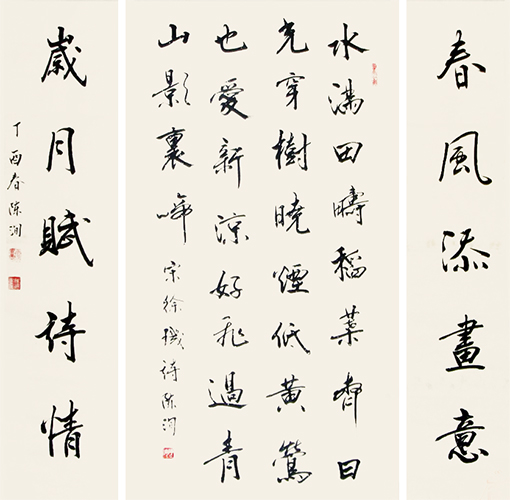 春風添畫意
水滿田疇稻葉齊日
光穿樹曉煙低黃鶯
也愛新涼好飛過青
山影裏啼
宋徐璣詩陳洞
歲月賦詩情
丁酉春陳洞